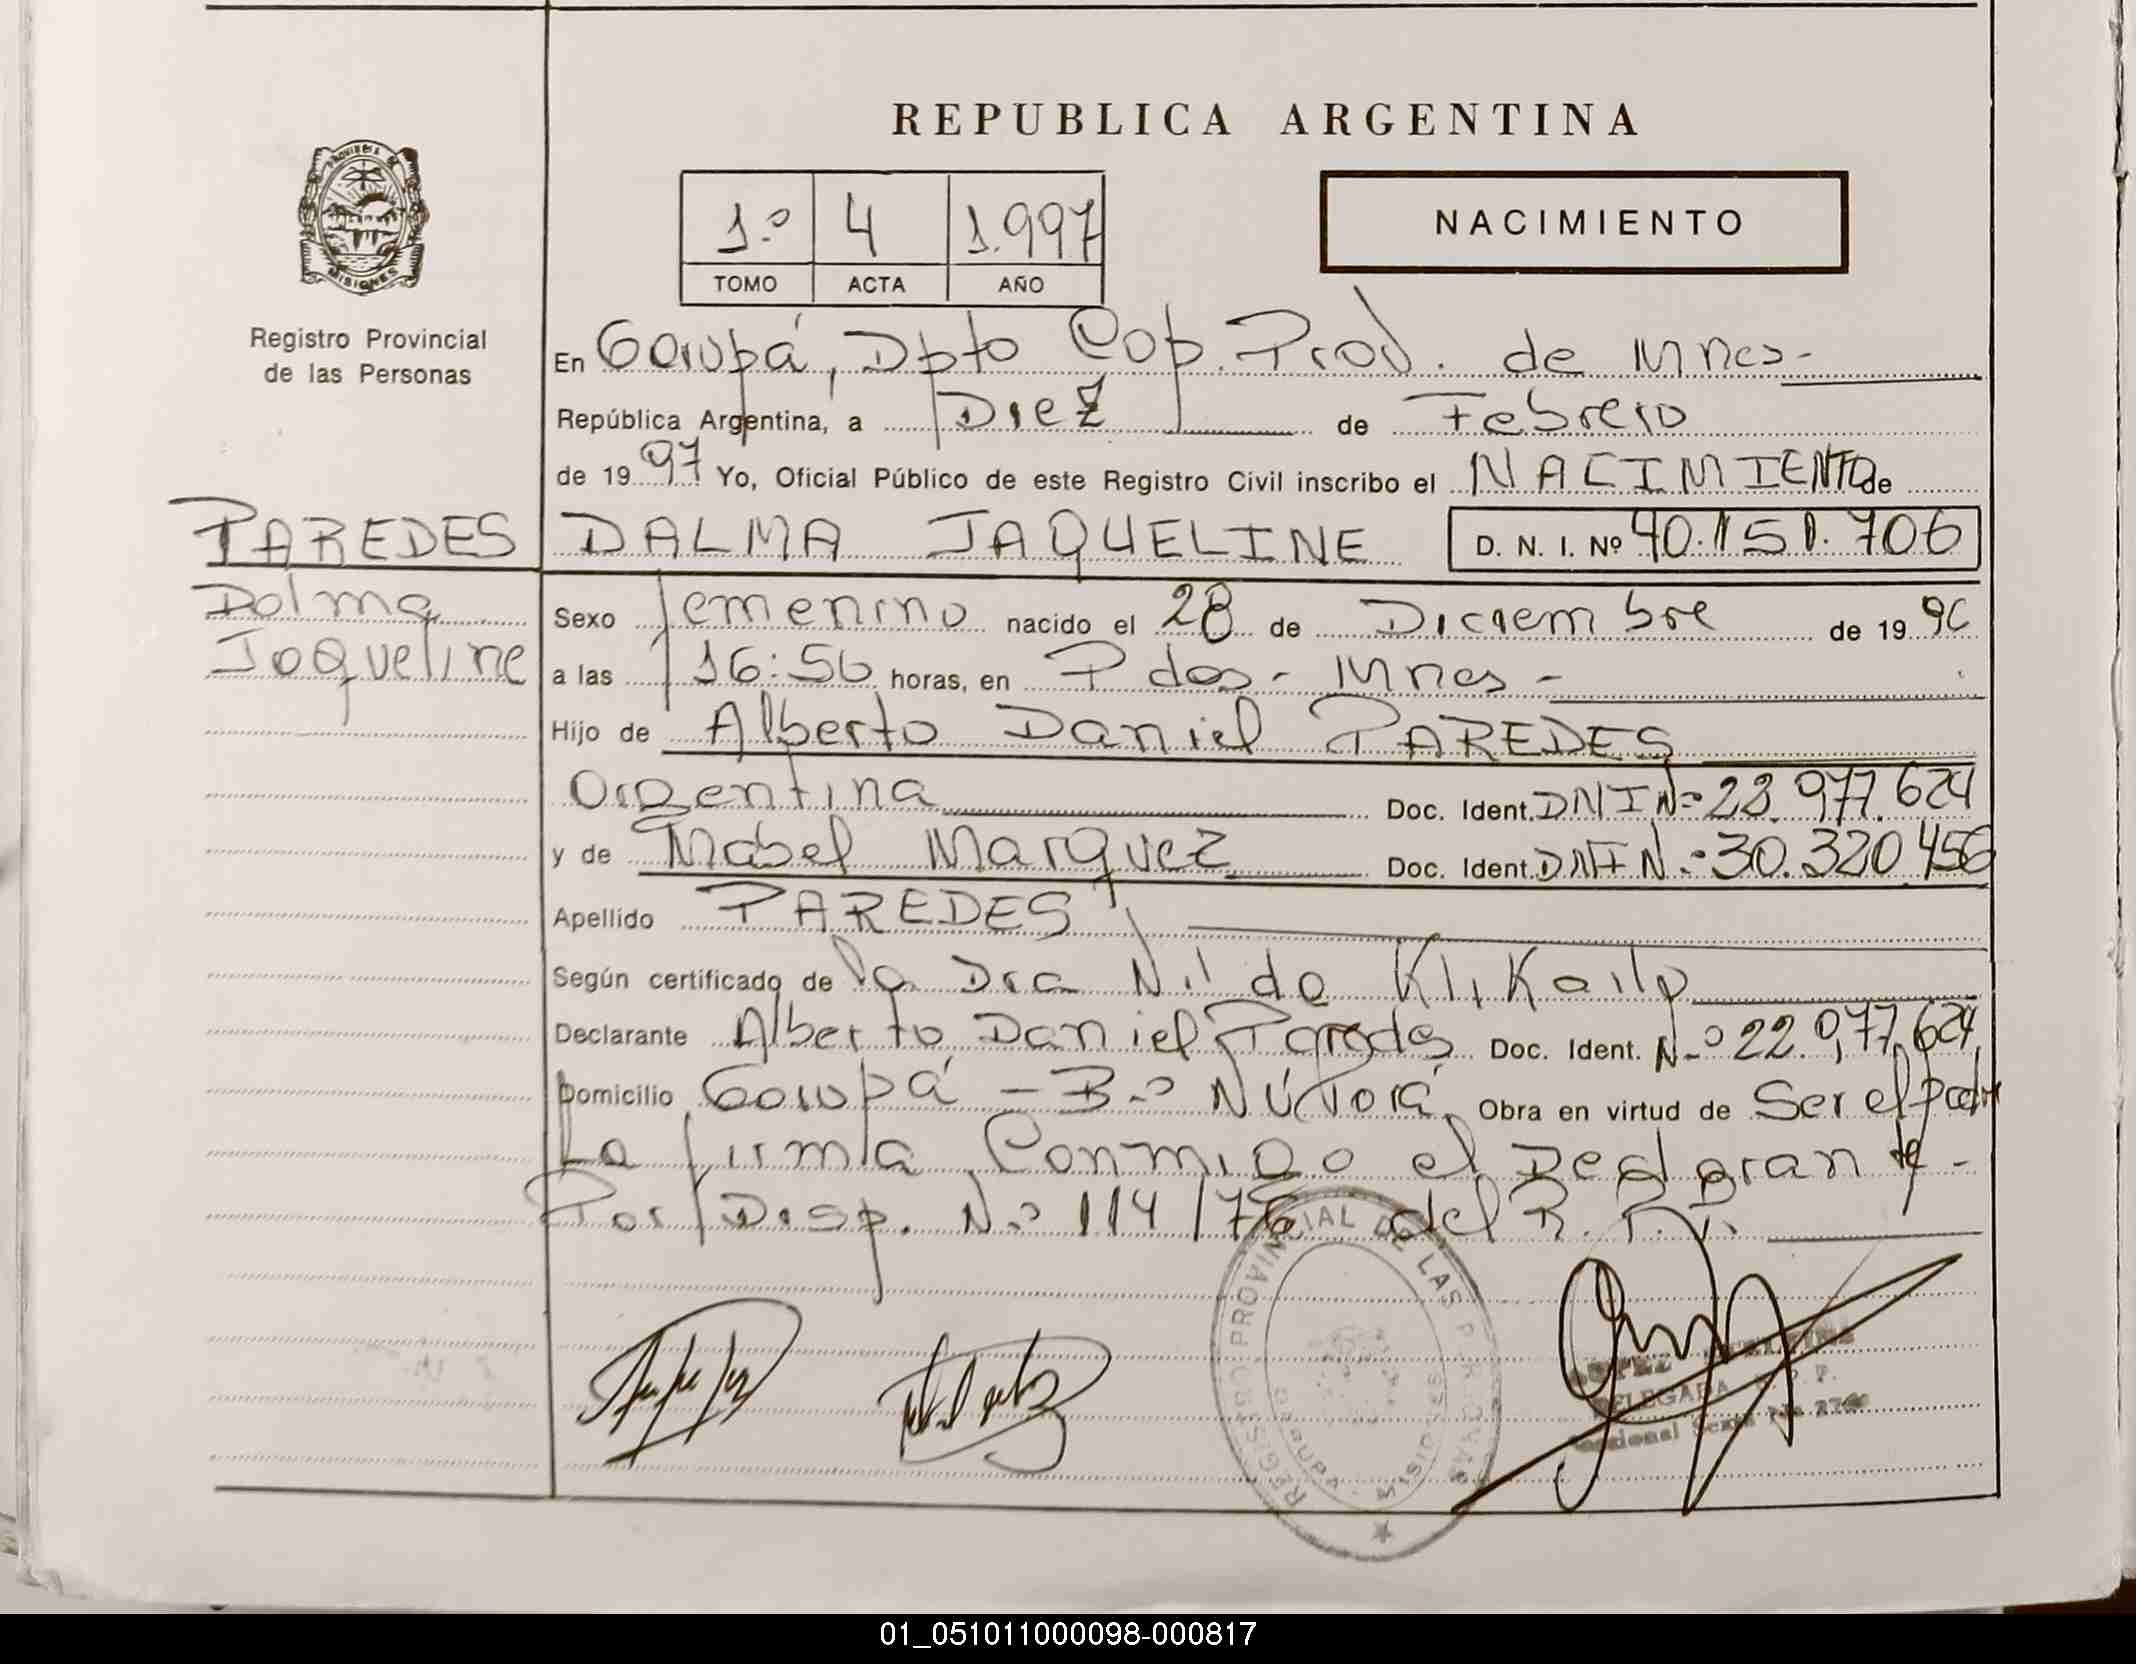 REPUBLICA ARGENTINA
PROVINCIA DE
MISIONES
Registro Provincial
de las Personas
1.º 4 1.997
TOMO ACTA AÑO
NACIMIENTO
En Garupá, Dpto Cap. Prov. de Mnes-
República Argentina, a Diez de Febrero
de 19 97 Yo, Oficial Público de este Registro Civil inscribo el NACIMIENTO de
PAREDES DALMA JAQUELINE D. N. I. Nº 40.151.706
Dalma
Jaqueline
Sexo femenino nacido el 28 de Diciembre de 19 96
a las 16:50 horas, en Pdas- Mnes-
Hijo de Alberto Daniel PAREDES
Argentina Doc. Ident. DNI Nº 977.624
y de Mabel Marquez Doc. Ident. DNI N.º 30.320.456
Apellido PAREDES
Según certificado de la Dra Nilda
Declarante Alberto Daniel Paredes Doc. Ident. N.º 22.977.624
Domicilio Garupá - B.º Ñú Porá Obra en virtud de Ser el Padre
La firma Conmigo el Declarante-
Por Disp. N.º 114/76 del R.P.P.
REGISTRO PROVINCIAL DE LAS PERSONAS
Garupá - MISIONES
LOPEZ
DELEGADA R.P.P.
01_051011000098-000817